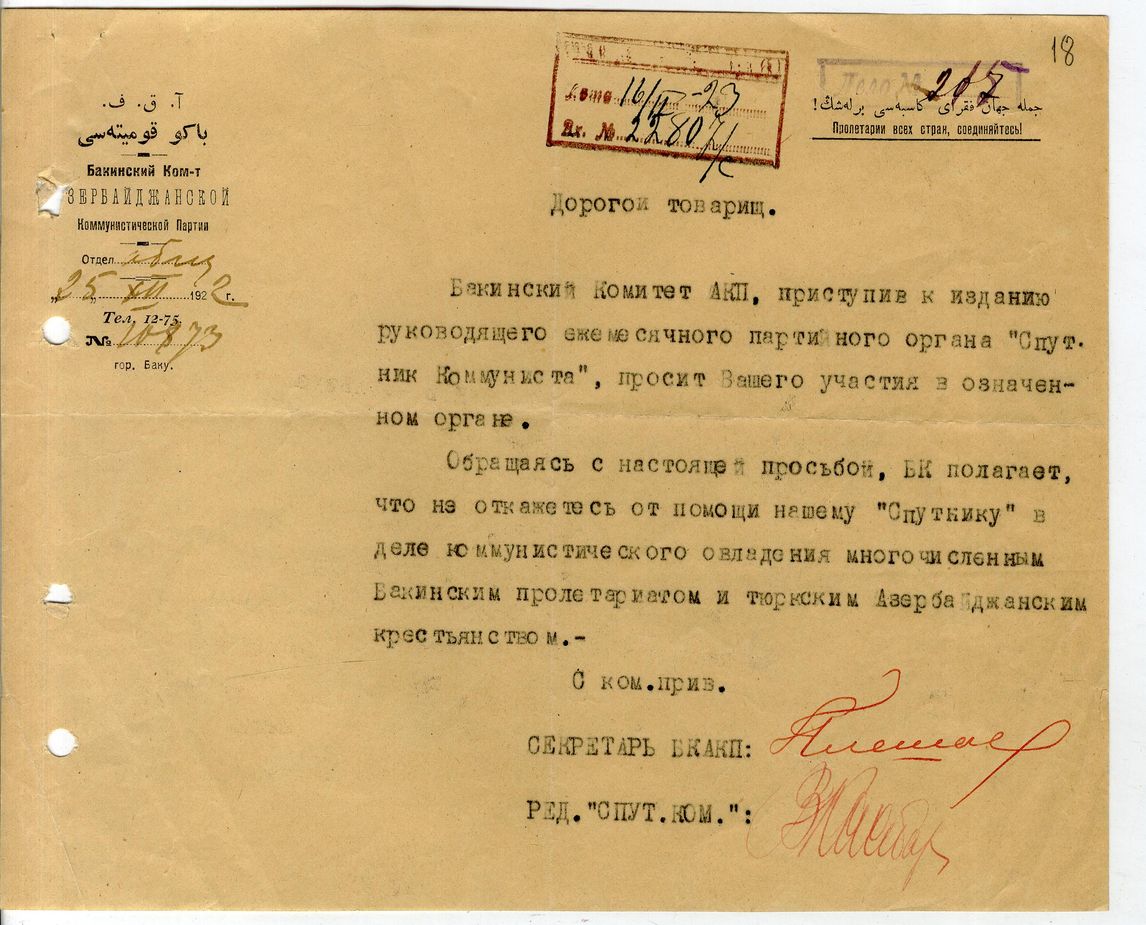 18
آ. ق. ف.
باكو قوميته‌سی
Бакинский Ком-т
ЗЕРБАЙДЖАНСКОЙ
Коммунистической Партии
Отдел
"25" XII 1922 г.
Тел. 12-75.
№ 10873
гор. Баку.
16/II-23
Вх. № 22807/с
Дело № 207
جمله جهان فقرای كاسبه‌سی برله‌شڭ!
Пролетарии всех стран, соединяйтесь!
Дорогой товарищ.
Бакинский Комитет АКП, приступив к изданию
руководящего ежемесячного партийного органа "Спут-
ник Коммуниста", просит Вашего участия в означен-
ном органе.
Обращаясь с настоящей просьбой, БК полагает,
что не откажетесь от помощи нашему "Спутнику" в
деле коммунистического овладения многочисленным
Бакинским пролетариатом и тюркским Азербайджанским
крестьянством.-
С ком.прив.
СЕКРЕТАРЬ БКАКП:
РЕД."СПУТ.КОМ.":